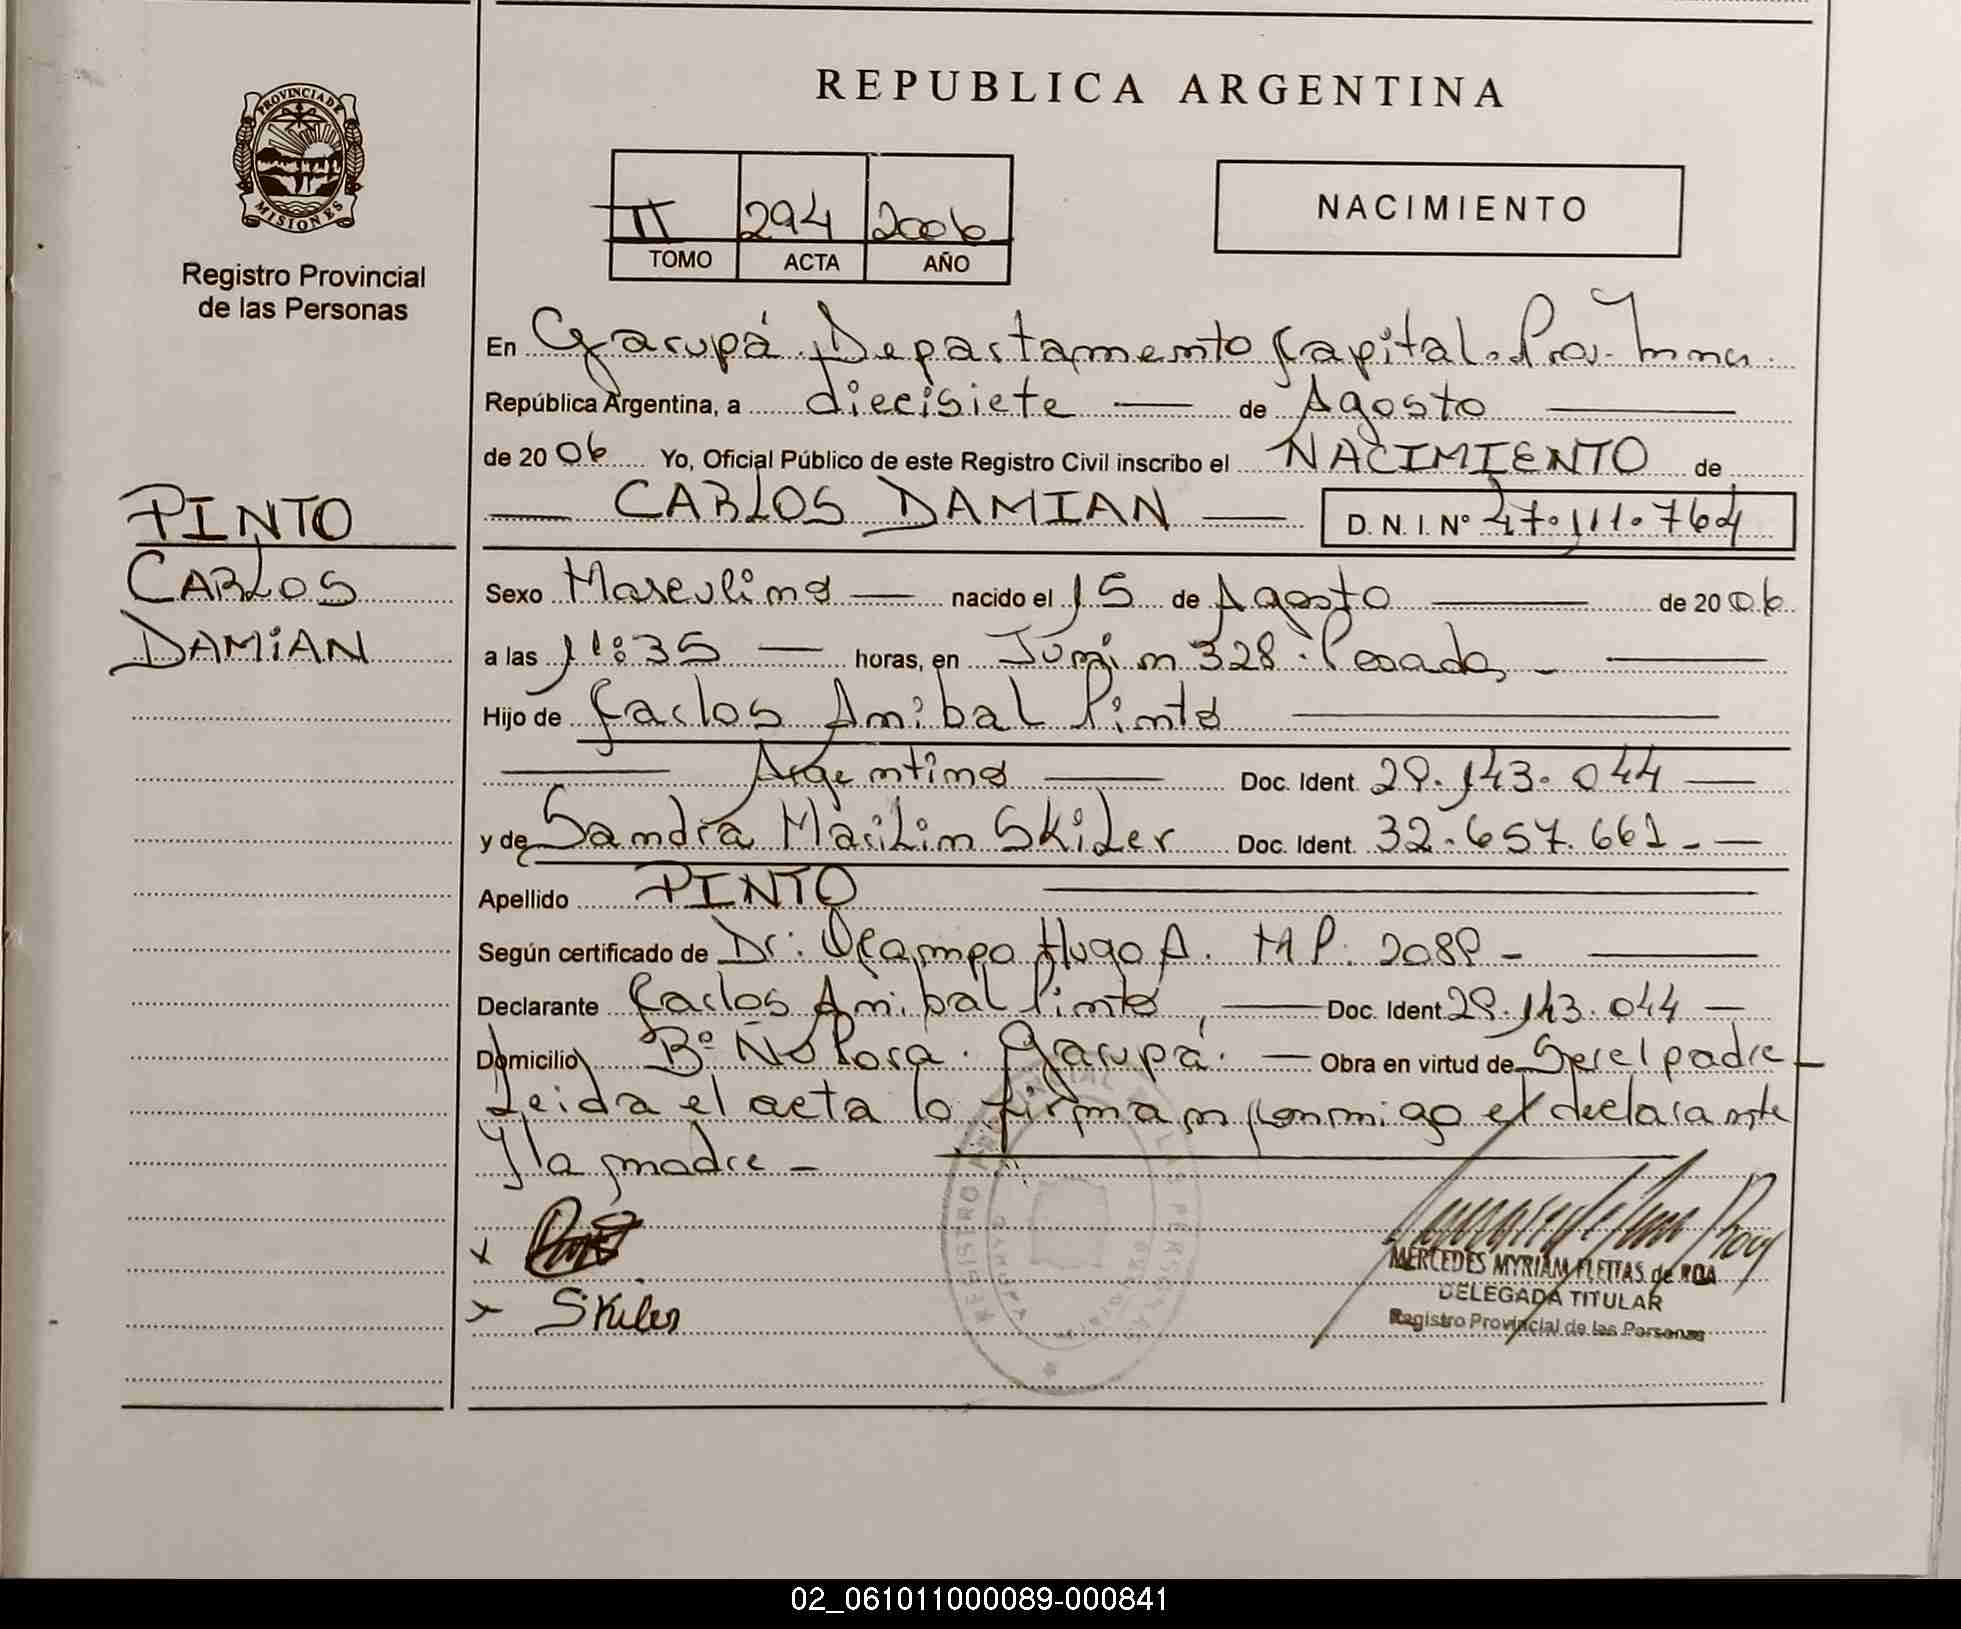 REPUBLICA ARGENTINA
PROVINCIA DE
MISIONES
Registro Provincial
de las Personas
II 294 2006
TOMO ACTA AÑO
NACIMIENTO
En Garupá, Departamento Capital. Prov.
República Argentina, a diecisiete de Agosto
de 2006 Yo, Oficial Público de este Registro Civil inscribo el NACIMIENTO de
CARLOS DAMIAN D. N. I. Nº 47.111.764
PINTO
CARLOS
DAMIAN
Sexo Masculino nacido el 15 de Agosto de 2006
a las 11:35 horas, en Junín 328. Posadas
Hijo de Carlos Anibal Pinto
Argentino Doc. Ident. 29.143.044
y de Sandra Marilin Skiler Doc. Ident. 32.657.661
Apellido PINTO
Según certificado de Dr: Ocampo Hugo A. M P. 2089
Declarante Carlos Anibal Pinto, Doc. Ident 29.143.044
Domicilio Bº Ñu Pora. Garupá. Obra en virtud de Ser el padre
Leida el acta lo firman conmigo el declarante
y la madre
x
x Skiler
MERCEDES MYRIAM FLEITAS de ROA
DELEGADA TITULAR
Registro Provincial de las Personas
02_061011000089-000841